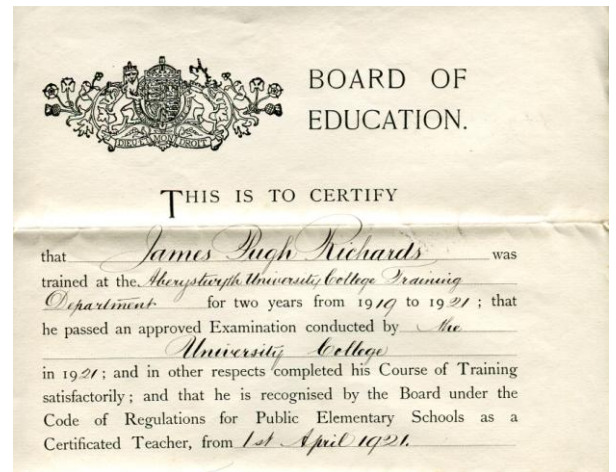 BOARD OF
EDUCATION.
DIEU ET MON DROIT
THIS IS TO CERTIFY
that James Pugh Richards was
trained at the Aberystwyth University College Training
Department for two years from 1919 to 1921; that
he passed an approved Examination conducted by the
University College
in 1921; and in other respects completed his Course of Training
satisfactorily; and that he is recognised by the Board under the
Code of Regulations for Public Elementary Schools as a
Certificated Teacher, from 1st April 1921.